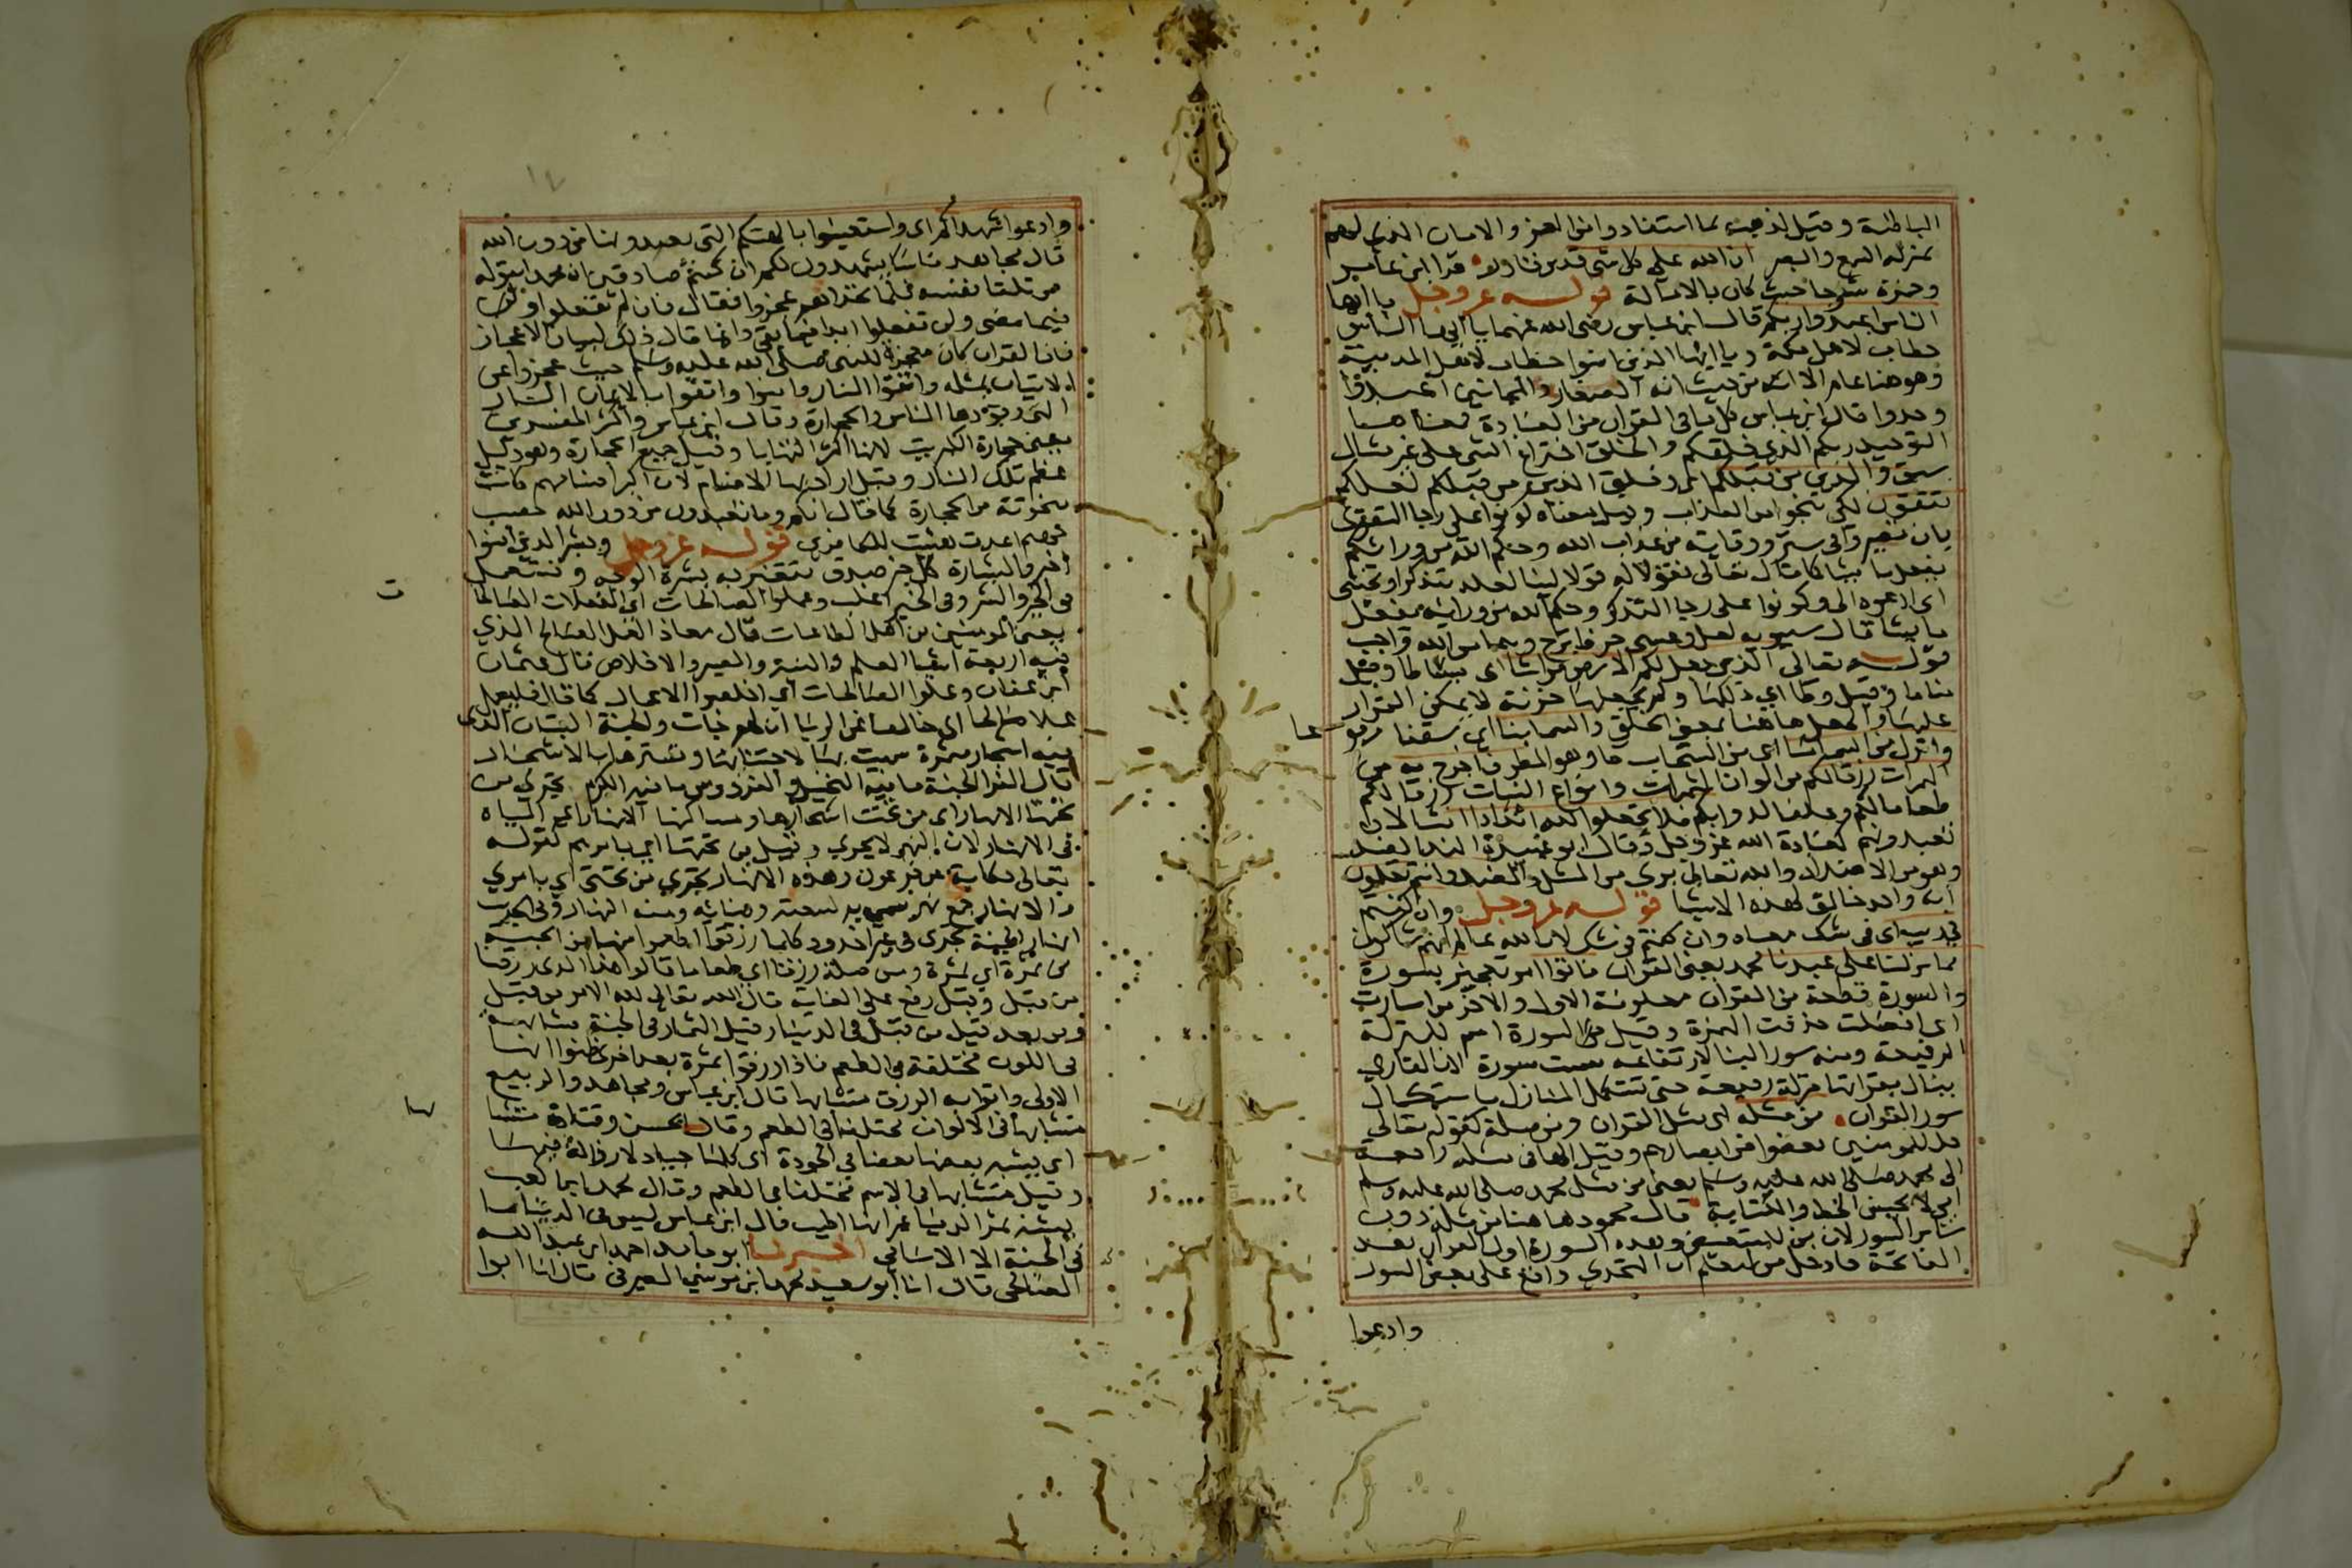 الباطنة وقيل لذهب بما استفادوا من العز والامان الذي لهم
بمنزلة السمع والبصر ان الله على كل شي قدير قادر قرا ابن عامر
وحمزة شا وجا حيث كان بالامالة قوله عز وجل يا ايها
الناس اعبدوا ربكم قال ابن عباس رضي الله عنهما يا ايها الناس
خطاب لاهل مكة ويا ايها الذين امنوا خطاب لاهل المدينة
وهو هنا عام الا انه من حيث انه الصغار والمجانين اعبدوا
وحدوا قال ابن عباس كل ما في القران من العبادة فمعناها
التوحيد ربكم الذي خلقكم والخلق اختراع الشي على غير مثال
سبق والذين من قبلكم اي وخلق الذين من قبلكم لعلكم
تتقون لكي تنجوا من العذاب وقيل معناه كونوا على رجا التقوى
بان تصيروا في ستر ووقاية من عذاب الله وحكم الله من ورائكم
يفعل ما يشا كما قال تعالى فقولا له قولا لينا لعله يتذكر او يخشى
اي ادعوه الى وكونوا على رجا التذكر وحكم الله من ورايه يفعل
ما يشا قال سيبويه لعل وعسى حرفا ترج وهما من الله واجب
قوله تعالى الذي جعل لكم الارض فراشا اي بساطا وقيل
مناما وقيل وطا اي ذللها ولم يجعلها حزنة لا يمكن القرار
عليها والجعل هاهنا بمعنى الخلق والسما بنا اي سقفا مرفوعا
وانزل من السما ما اي من السحاب ما وهو المطر فاخرج به من
الثمرات رزقا لكم من الوان الثمرات وانواع النبات رزقا لكم
طعاما لكم وعلفا لدوابكم فلا تجعلوا لله اندادا امثالا
تعبدونهم كعبادة الله عز وجل وقال ابو عبيدة الند الضد
وهو من الاضداد والله تعالى بري من المثل والضد وانتم تعلمون
انه واحد خالق لهذه الاشيا قوله عز وجل وان كنتم
في ريب اي في شك معناه وان كنتم في شك لان الله عالم انهم شاكون
مما نزلنا على عبدنا محمد يعني القران فاتوا امر تعجيز بسورة
والسورة قطعة من القران معلومة الاول والاخر من اسارت
اي افضلت حذفت الهمزة وقيل السورة اسم للمنزلة
الرفيعة ومنه سور البنا لارتفاعه سميت سورة لان القاري
ينال بقراتها منزلة رفيعة حتى تستكمل المنازل باستكمال
سور القران من مثله اي مثل القران ومن صلة كقوله تعالى
قل للمومنين يغضوا من ابصارهم وقيل الها في مثله راجعة
الى محمد صلى الله عليه وسلم يعني من مثل محمد صلى الله عليه وسلم
امي لا يحسن الخط والكتابة قال محمود هاهنا من مثله دون
ساير السور لان من للتبعيض وهذه السورة اول القران بعد
الفاتحة فادخل من ليعلم ان التحدي واقع على بعض السور
وادعوا
وادعوا شهداكم اي واستعينوا بالهتكم التي تعبدونها من دون الله
قال مجاهد ناسا يشهدون لكم ان كنتم صادقين ان محمدا يقوله
من تلقا نفسه فلما تحداهم عجزوا فقال فان لم تفعلوا اوطا
فيما مضى ولن تفعلوا ابدا فيما بقي وانما قال ذلك لبيان الاعجاز
فان القران كان معجزة للنبي صلى الله عليه وسلم حيث عجزوا عن
الاتيان بمثله واتقوا النار فامنوا واتقوا بالايمان النار
التي وقودها الناس والحجارة وقال ابن عباس واكثر المفسرين
يعني حجارة الكبريت لانها اكثر التهابا وقيل جميع الحجارة وهو دليل
عظم تلك النار وقيل اراد بها الاصنام لان اكثر اصنامهم كانت
منحوتة من الحجارة كما قال انكم وما تعبدون من دون الله حصب
جهنم اعدت هيئت للكافرين قوله عز وجل وبشر الذين امنوا
اخبر والبشارة كل خبر صدق تتغير به بشرة الوجه وتستعمل
في الخير والشر وفي الخير اغلب وعملوا الصالحات اي الفعلات الصالحات
يعني المومنين من اهل الطاعات قال معاذ العمل الصالح الذي
فيه اربعة اشيا العلم والنية والصبر والاخلاص قال عثمان
ابن عفان وعملوا الصالحات اي اخلصوا الاعمال كما قال فليعمل
عملا صالحا اي خالصا عن الريا ان لهم جنات والجنة البستان الذي
فيه اشجار مثمرة سميت بها لاجتنانها وتسترها بالاشجار
قال الفرا الجنة ما فيه النخيل والفردوس ما فيه الكرم تجري من
تحتها الانهار اي من تحت اشجارها ومساكنها الانهار اي المياه
في الانهار لان النهر لا يجري وقيل من تحتها اي بامرهم لقوله
تعالى حكاية عن فرعون وهذه الانهار تجري من تحتي اي بامري
والانهار جمع نهر سمي به لسعته وضيايه ومنه النهار وفي الحديث
انهار الجنة تجري في غير اخدود كلما رزقوا اطعموا منها من الجنة
من ثمرة اي ثمرة ومن صلة رزقا اي طعاما قالوا هذا الذي رزقنا
من قبل وقبل رفع على الغاية قال الله تعالى لله الامر من قبل
ومن بعد قيل من قبل في الدنيا وقيل الثمار في الجنة متشابهة
في اللون مختلفة في الطعم فاذا رزقوا ثمرة بعد اخرى ظنوا انها
الاولى واتوا به الرزق متشابها قال ابن عباس ومجاهد والربيع
متشابها في الالوان مختلفا في الطعم وقال الحسن وقتادة متشابها
اي يشبه بعضها بعضا في الجودة اي كلها جياد لا رذالة فيها
وقيل متشابها في الاسم مختلفا في الطعم وقال محمد ابن كعب
يشبه ثمر الدنيا غير انها اطيب قال ابن عباس ليس في الدنيا مما
في الجنة الا الاسامي اخبرنا ابو حامد احمد ابن عبد الله
الصالحي قال انا ابو سعيد محمد ابن موسى الصيرفي قال انا ابوا